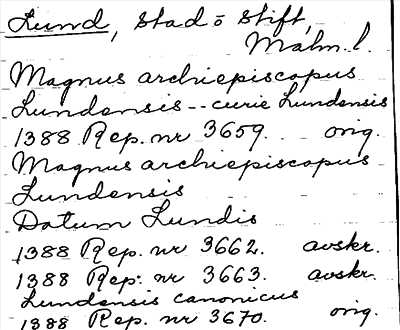 Lund, Stad o Stift,
Malm. l.
Magnus archiepiscopus
Lundensis -- curie Lundensis
1388 Rep. nr 3659. orig.
Magnus archiepiscopus
Lundensis
Datum Lundis
1388 Rep. nr 3662. avskr.
1388 Rep. nr 3663. avskr.
Lundensis canonicus
1388 Rep. nr 3670. orig.